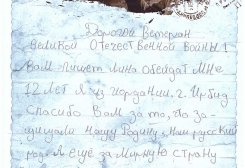 Дорогой Ветеран
Великой Отечественной Войны!
Вам пишет Лина Обейдат мне
12 лет я из Иордании. г. Ирбид
Спасибо Вам за то, что за-
щищали нашу Родину, наш русский
род. я ещё за мирную страну